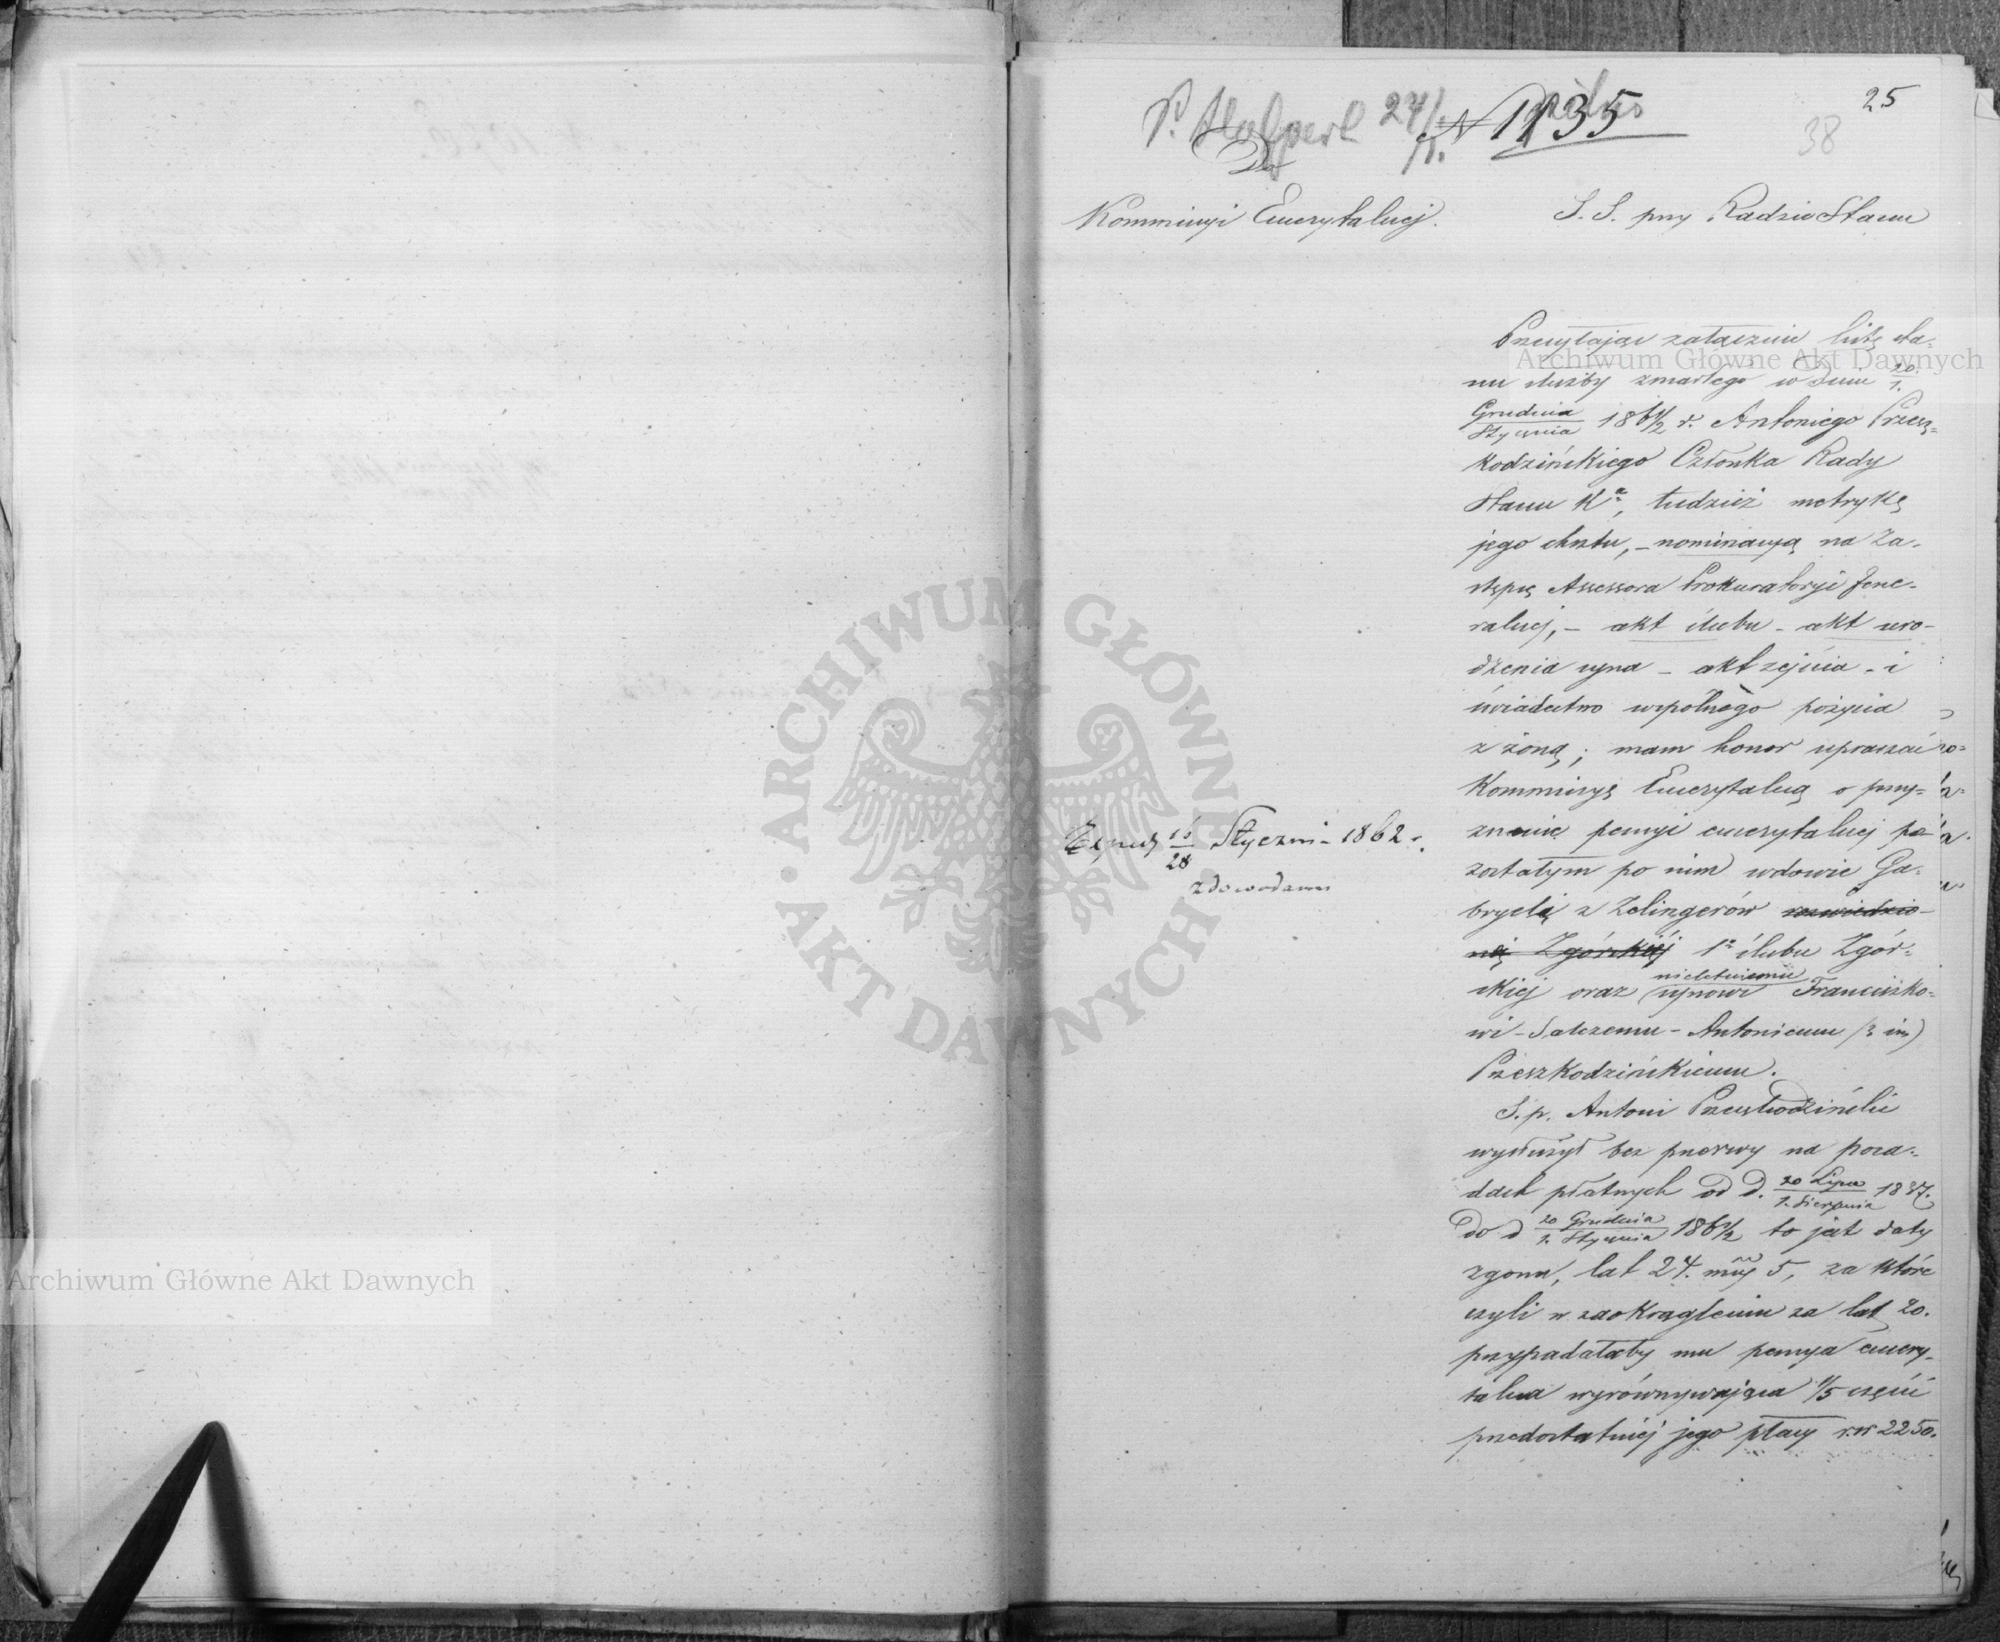 25
38
P. Halpert 24/1. pilno
N 1135
Do
Kommissyi Emerytalnej.
S. S. przy Radzie Stanu
Przesyłając załącznie listę sta-
nu służby zmarłego w dniu 20/1.
Grudnia/Stycznia 1861/2 r. Antoniego Przesz-
kodzińskiego Członka Rady
Stanu Kr, tudzież metrykę
jego chrztu, - nominacyą na Za-
stępcę Assessora Prokuratoryi Jene-
ralnej, - akt ślubu - akt uro-
dzenia syna - akt zejścia - i
świadectwo wspólnego pożycia
z żoną; mam honor upraszać
Kommissyę Emerytalną o przy-
znanie pensyi emerytalnej po-
zostałym po nim wdowie Ga-
bryeli z Zelingerów rozwiedzio-
nej Zgórskiej 1o ślubu Zgór-
skiej oraz nieletniemu synowi Franciszko-
wi - Salezemu - Antoniemu (3 im)
Przeszkodzińskiemu.
Exped 16/28 Stycznia 1862 r.
z dowodami
S. p. Antoni Przeszkodziński
wysłużył bez przerwy na posa-
dach płatnych od d. 20 Lipca/1. Sierpnia 1837.
do d 20 Grudnia/1. Stycznia 1861/2 to jest daty
zgonu, lat 24. mcy 5, za które
czyli w zaokrągleniu za lat 20.
przypadałaby mu pensya emery-
talna wyrównywająca 1/5 części
przedostatniej jego płacy rsr 2250.
Archiwum Główne Akt Dawnych
Archiwum Główne Akt Dawnych
ARCHIWUM GŁÓWNE
AKT DAWNYCH